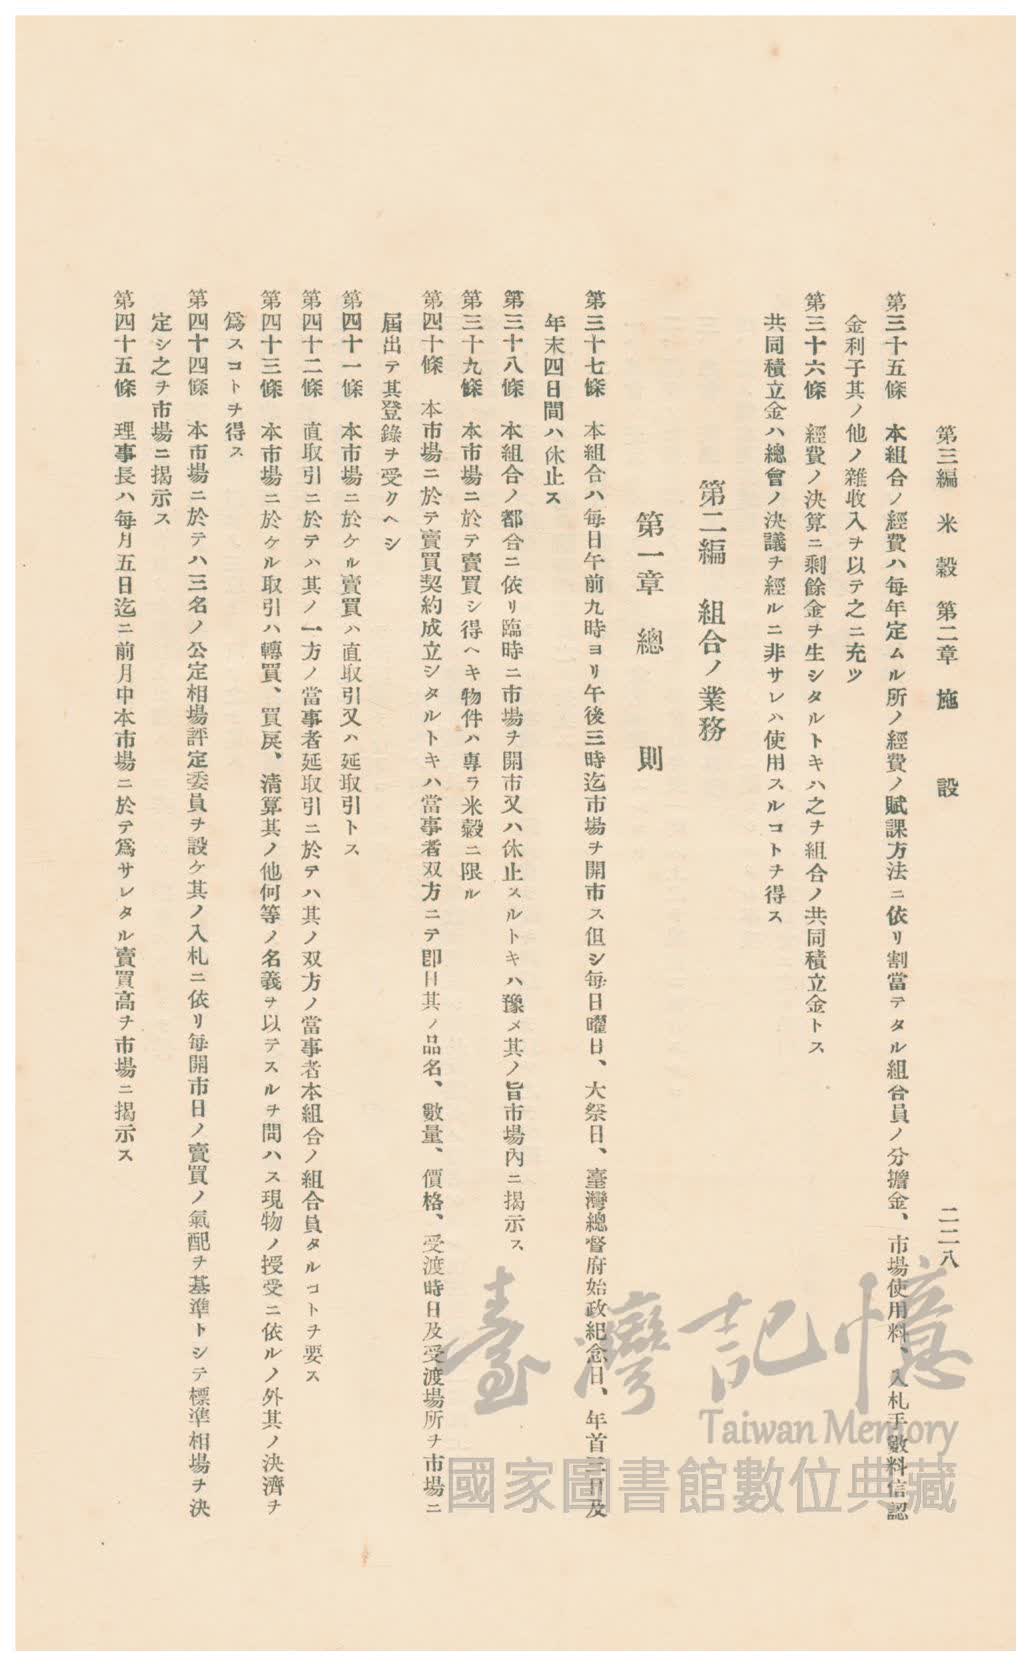 第三編　米　穀　第二章　施　　設　　二二八
第三十五條　本組合ノ經費ハ毎年定ムル所ノ經費ノ賦課方法ニ依リ割當テタル組合員ノ分擔金、市場使用料、入札手數料信認
金利子其ノ他ノ雜收入ヲ以テ之ニ充ツ
第三十六條　經費ノ決算ニ剩餘金ヲ生シタルトキハ之ヲ組合ノ共同積立金トス
共同積立金ハ總會ノ決議ヲ經ルニ非サレハ使用スルコトヲ得ス
第二編　組合ノ業務
第一章　總　　則
第三十七條　本組合ハ毎日午前九時ヨリ午後三時迄市場ヲ開市ス但シ毎日曜日、大祭日、臺灣總督府始政紀念日、年首三日及
年末四日間ハ休止ス
第三十八條　本組合ノ都合ニ依リ臨時ニ市場ヲ開市又ハ休止スルトキハ豫メ其ノ旨市場內ニ揭示ス
第三十九條　本市場ニ於テ賣買シ得ヘキ物件ハ專ラ米穀ニ限ル
第四十條　本市場ニ於テ賣買契約成立シタルトキハ當事者双方ニテ卽日其ノ品名、數量、價格、受渡時日及受渡場所ヲ市場ニ
屆出テ其登錄ヲ受クヘシ
第四十一條　本市場ニ於ケル賣買ハ直取引又ハ延取引トス
第四十二條　直取引ニ於テハ其ノ一方ノ當事者延取引ニ於テハ其ノ双方ノ當事者本組合ノ組合員タルコトヲ要ス
第四十三條　本市場ニ於ケル取引ハ轉買、買戾、淸算其ノ他何等ノ名義ヲ以テスルヲ問ハス現物ノ授受ニ依ルノ外其ノ決濟ヲ
爲スコトヲ得ス
第四十四條　本市場ニ於テハ三名ノ公定相場評定委員ヲ設ケ其ノ入札ニ依リ毎開市日ノ賣買ノ氣配ヲ基準トシテ標準相場ヲ決
定シ之ヲ市場ニ揭示ス
第四十五條　理事長ハ毎月五日迄ニ前月中本市場ニ於テ爲サレタル賣買高ヲ市場ニ揭示ス
臺灣記憶
Taiwan Memory
國家圖書館數位典藏